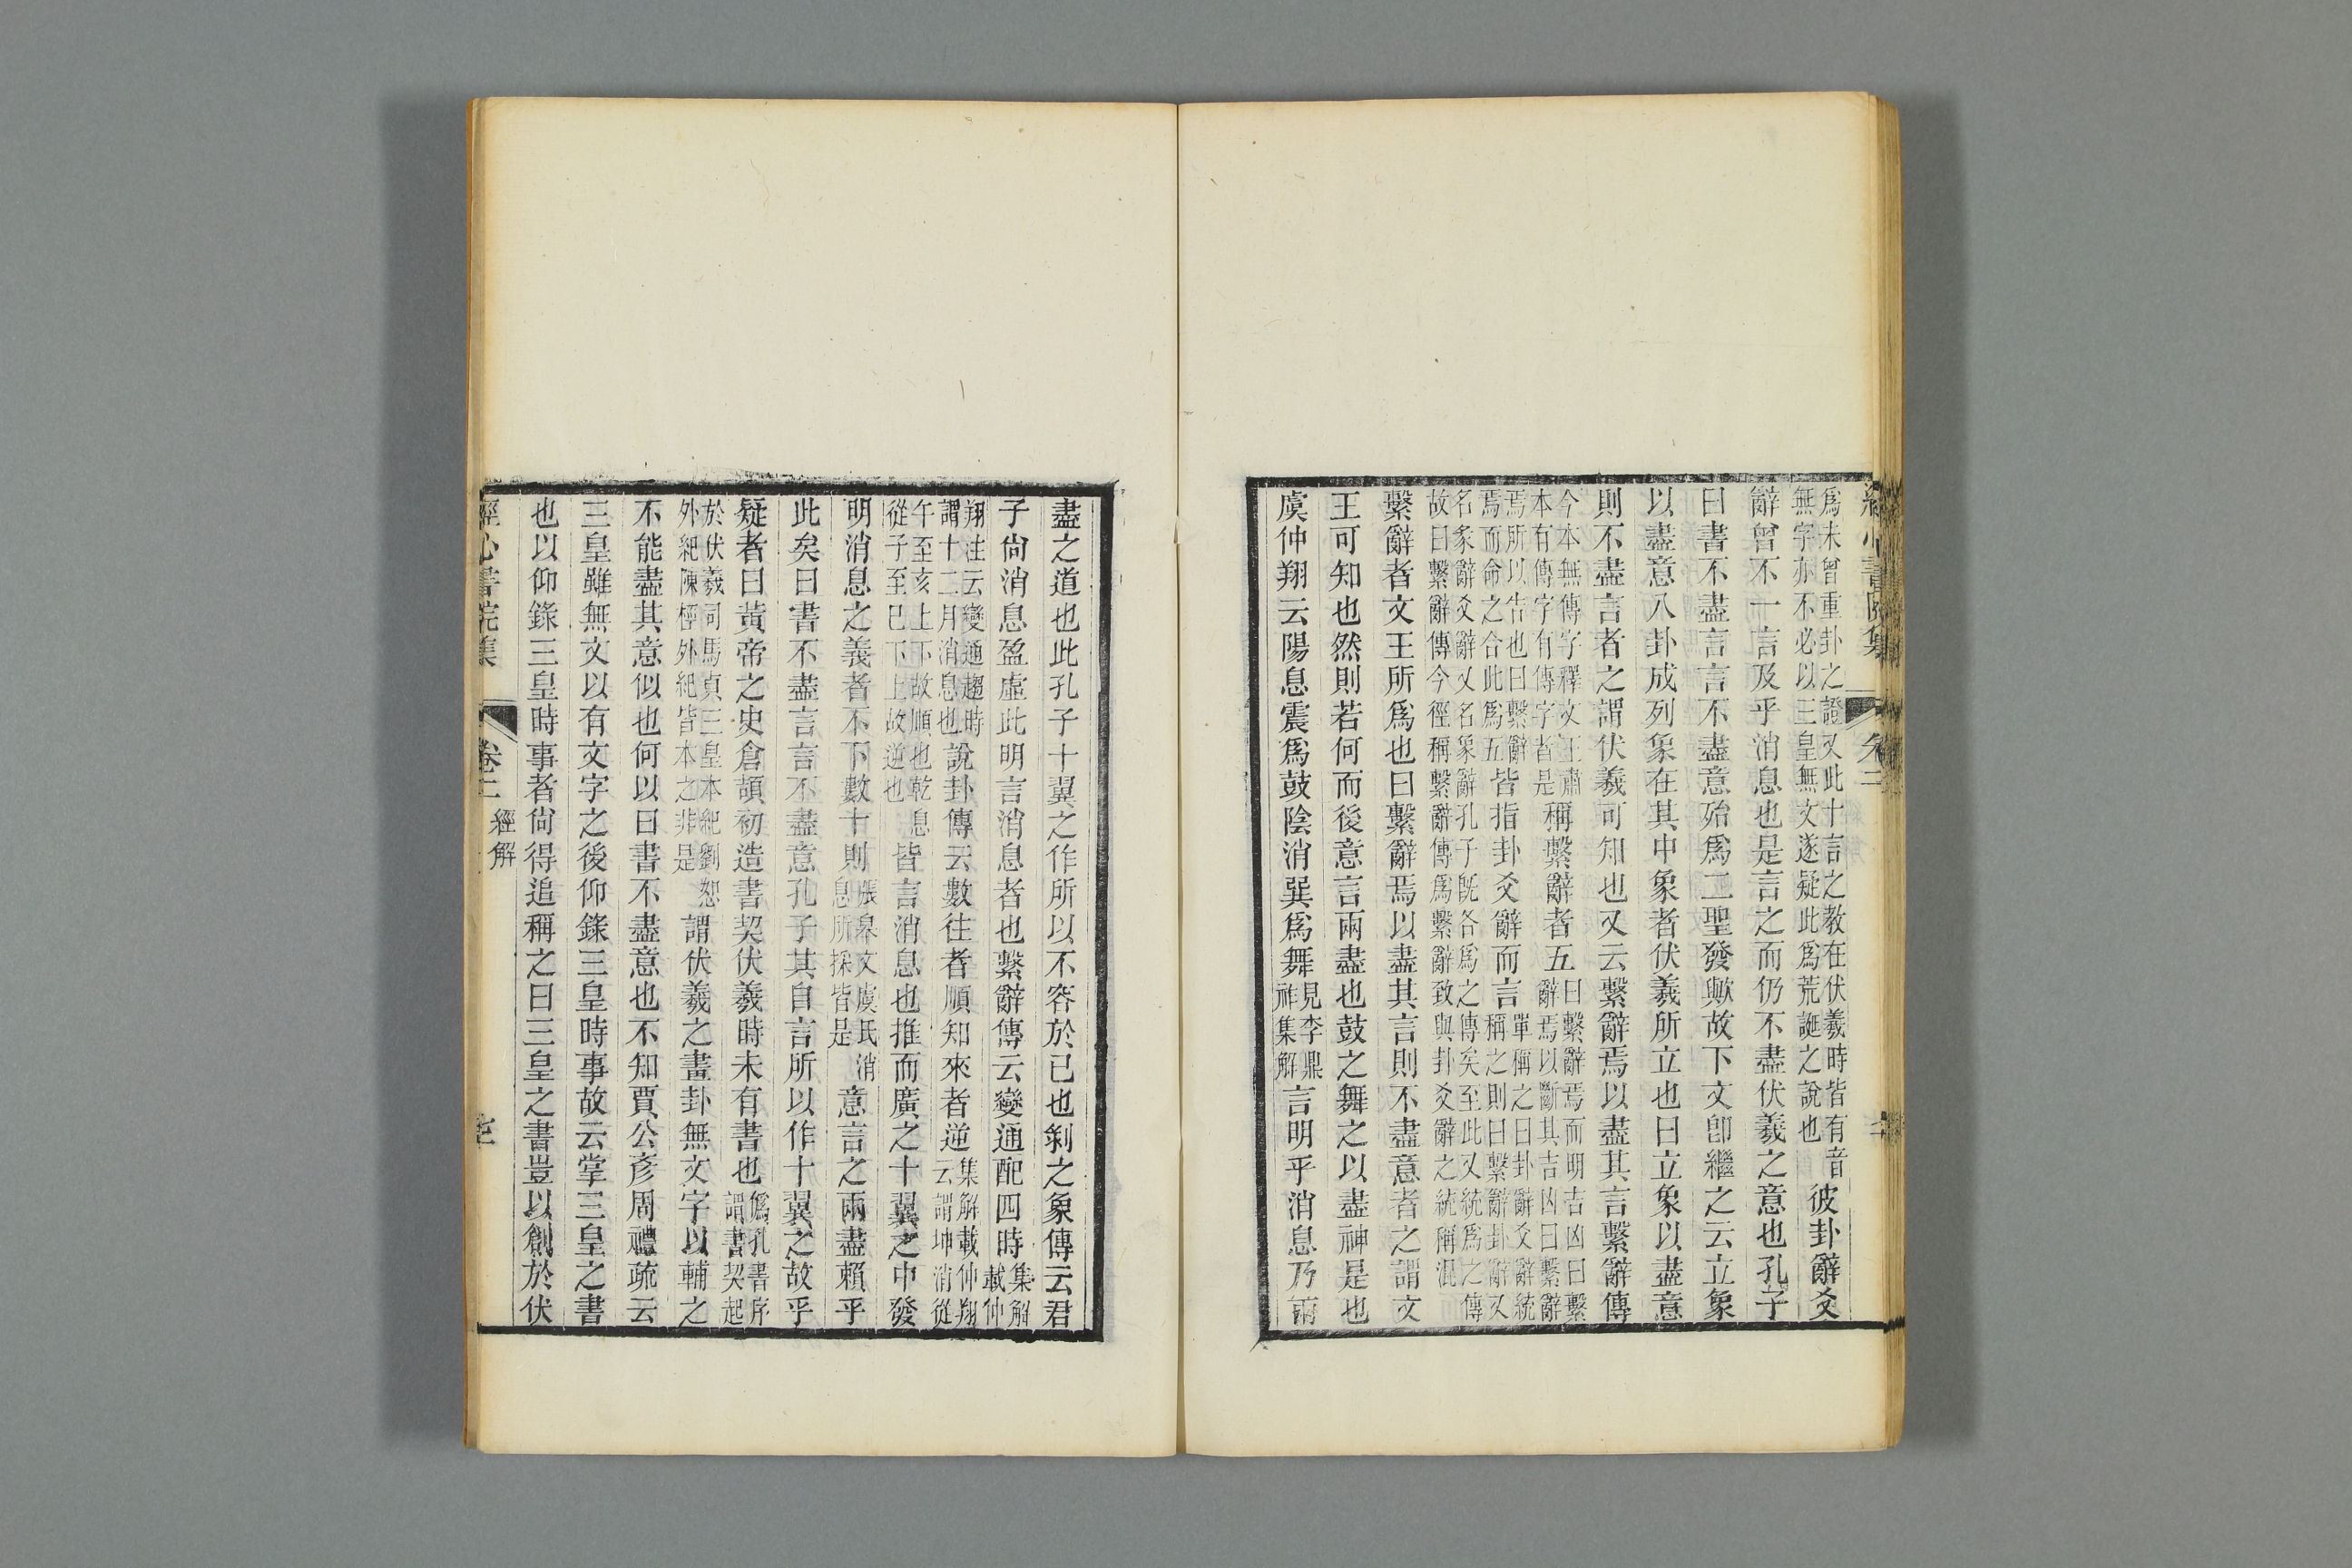 爲未曾重卦之證又此十言之教在伏羲時皆有音
無字亦不必以三皇無文遂疑此爲荒誕之說也
彼卦辭爻
辭曾不一言及乎消息也是言之而仍不盡伏羲之意也孔子
曰書不盡言言不盡意殆爲二聖發歟故下文卽繼之云立象
以盡意八卦成列象在其中象者伏羲所立也曰立象以盡意
則不盡言者之謂伏羲可知也又云繫辭焉以盡其言繫辭傳
今本無傳字釋文王肅
本有傳字有傳字者是
稱繫辭者五
曰繫辭焉而明吉凶曰繫
辭焉以斷其吉凶曰繫辭
焉所以告也曰繫辭
焉而命之合此爲五
皆指卦爻辭而言
單稱之曰卦辭爻辭統
稱之則曰繫辭卦辭又
名彖辭爻辭又名象辭孔子旣各爲之傳矣至此又統爲之傳
故曰繫辭傳今徑稱繫辭傳爲繫辭致與卦爻辭之統稱混
繫辭者文王所爲也曰繫辭焉以盡其言則不盡意者之謂文
王可知也然則若何而後意言兩盡也鼓之舞之以盡神是也
虞仲翔云陽息震爲鼓陰消巽爲舞
見李鼎
祚集解
言明乎消息乃兩
盡之道也此孔子十翼之作所以不容於已也剝之象傳云君
子尙消息盈虛此明言消息者也繫辭傳云變通配四時
集解
載仲
翔注云變通趨時
謂十二月消息也
說卦傳云數往者順知來者逆
集解載仲翔
云謂坤消從
午至亥上下故順也乾息
從子至巳下上故逆也
皆言消息也推而廣之十翼之中發
明消息之義者不下數十則
張皋文虞氏消
息所採皆是
意言之兩盡賴乎
此矣曰書不盡言言不盡意孔子其自言所以作十翼之故乎
疑者曰黃帝之史倉頡初造書契伏羲時未有書也
僞孔書序
謂書契起
於伏羲司馬貞三皇本紀劉恕
外紀陳桱外紀皆本之非是
謂伏羲之畫卦無文字以輔之
不能盡其意似也何以曰書不盡意也不知賈公彥周禮疏云
三皇雖無文以有文字之後仰錄三皇時事故云掌三皇之書
也以仰錄三皇時事者尙得追稱之曰三皇之書豈以創於伏
經心書院集
卷二
經解